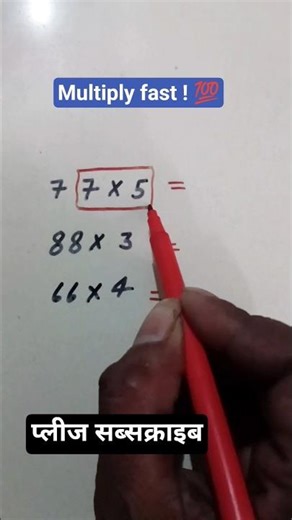 Multiply fast ! 💯
7 7 × 5 =
88 × 3 =
66 × 4 =
प्लीज सब्सक्राइब